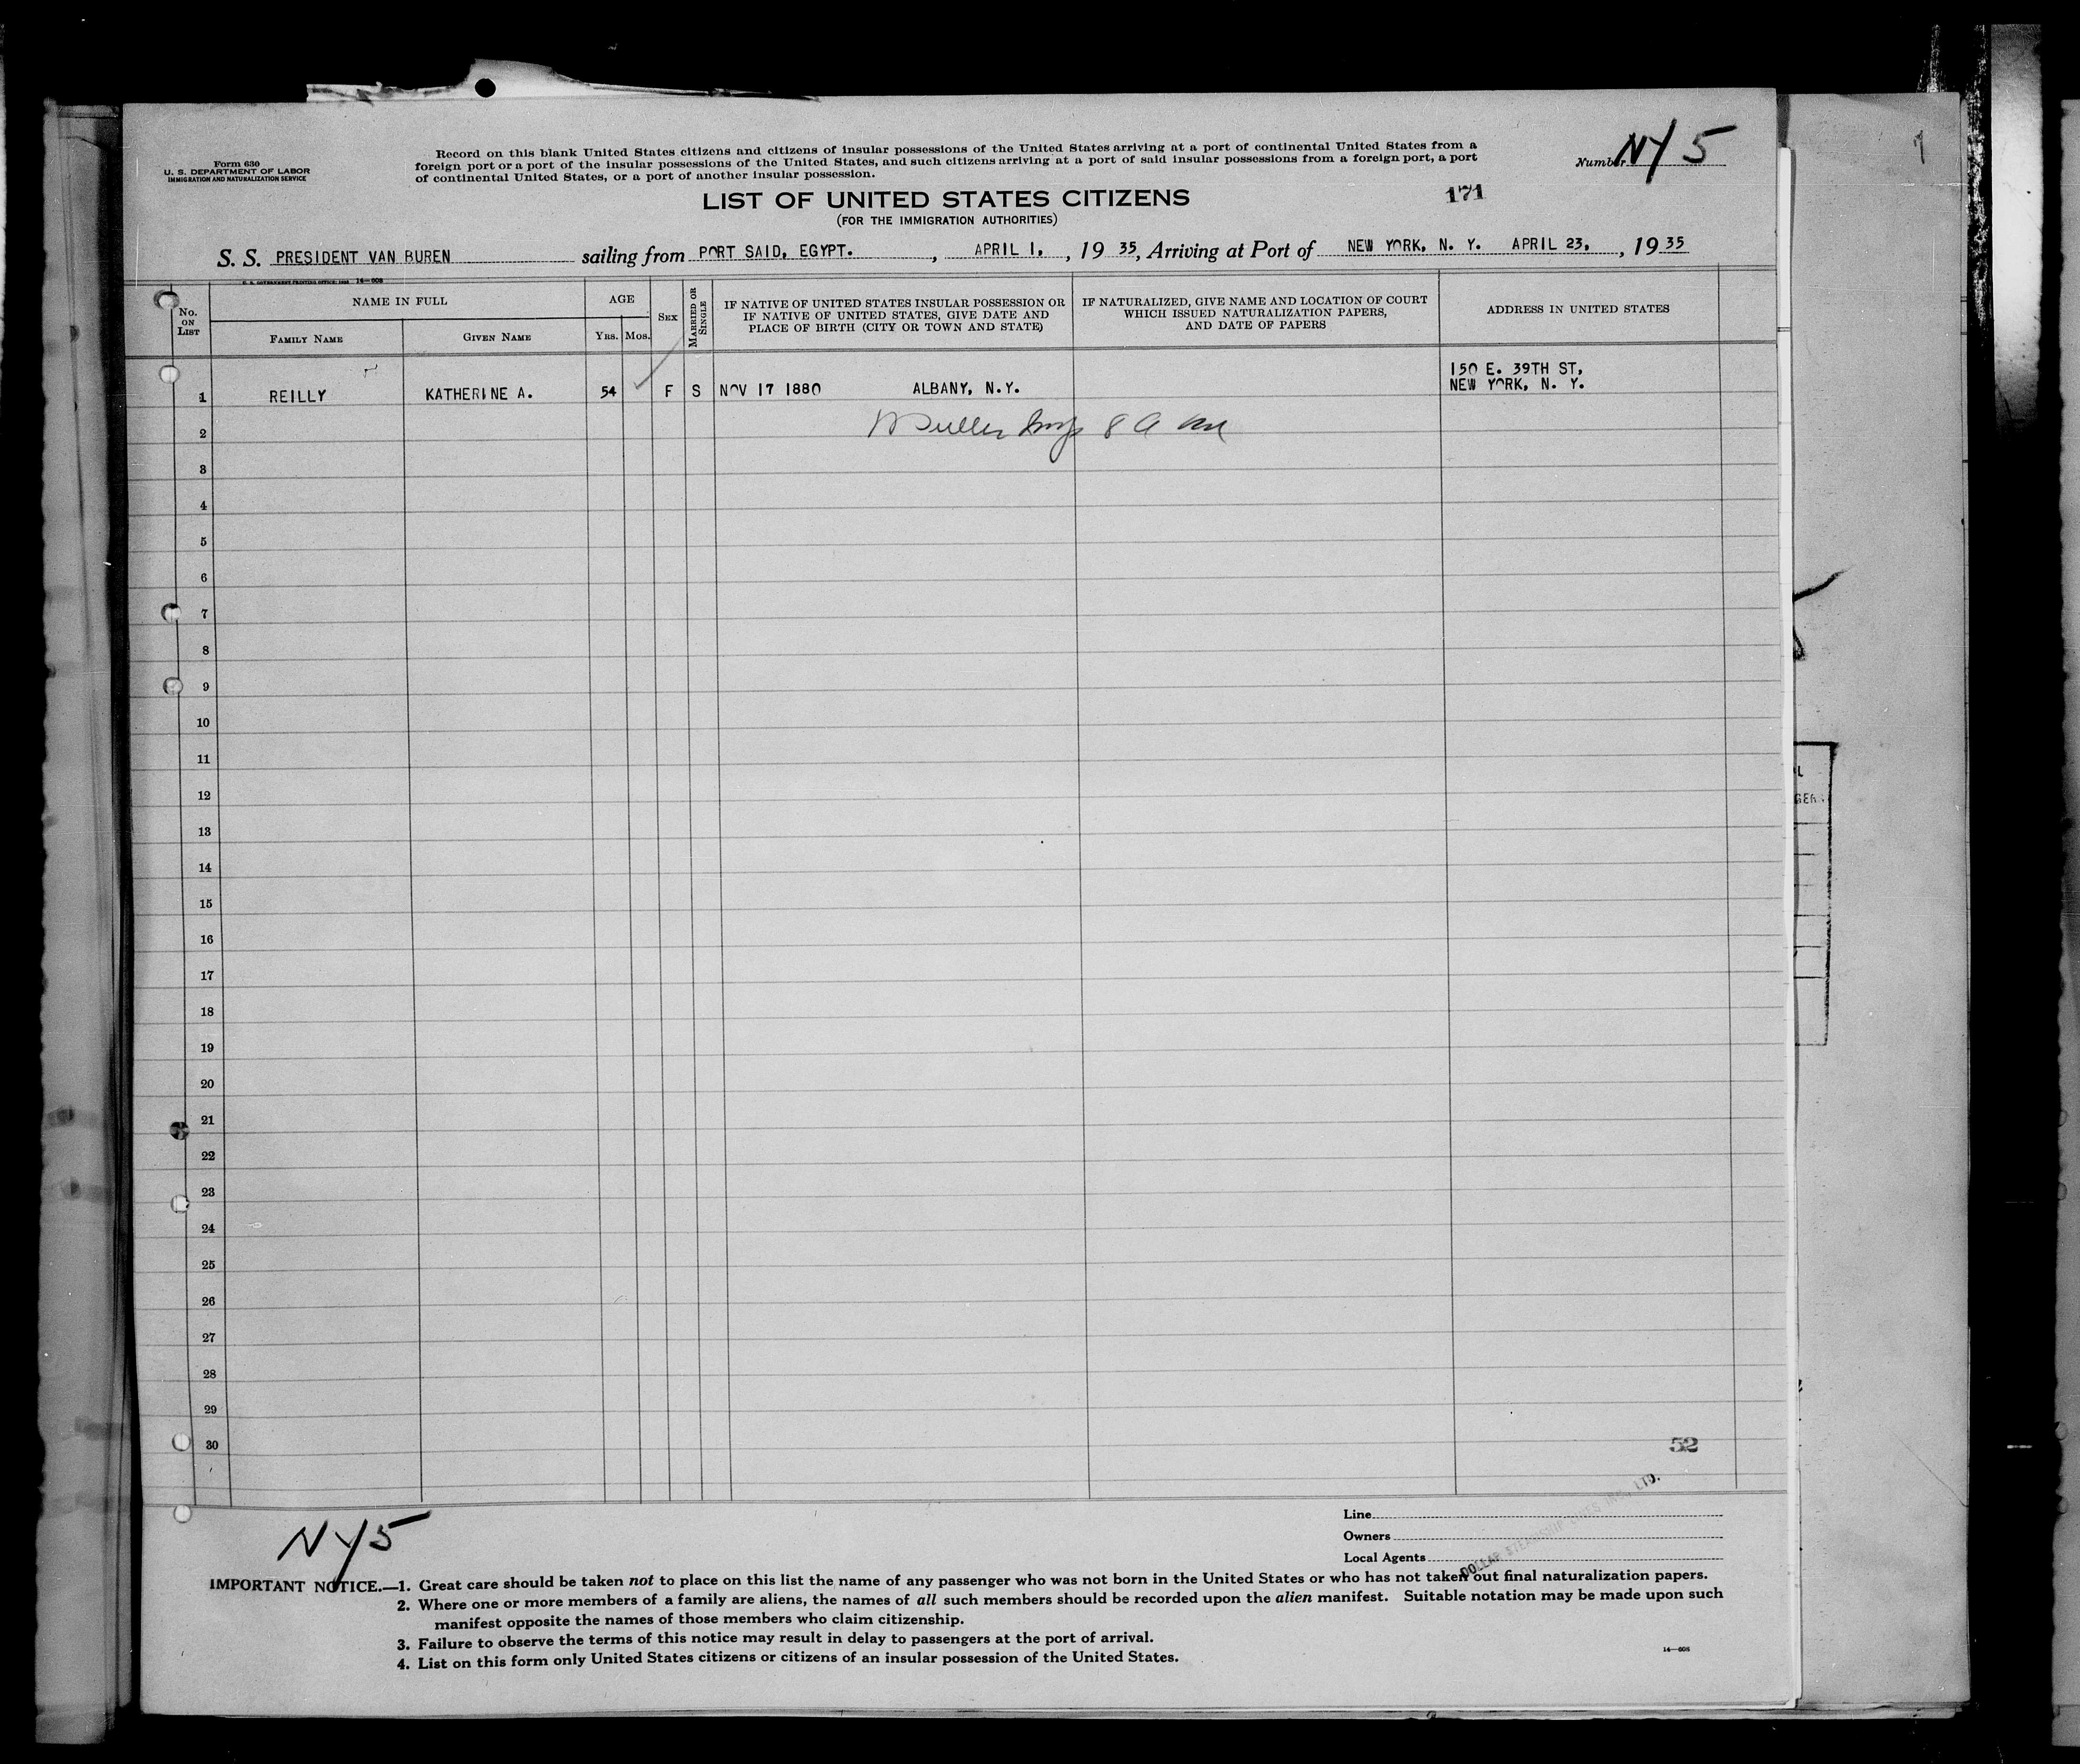 Form 630
U. S. DEPARTMENT OF LABOR
IMMIGRATION AND NATURALIZATION SERVICE
Record on this blank United States citizens and citizens of insular possessions of the United States arriving at a port of continental United States from a
foreign port or a port of the insular possessions of the United States, and such citizens arriving at a port of said insular possessions from a foreign port, a port
of continental United States, or a port of another insular possession.
Number NY 5
LIST OF UNITED STATES CITIZENS
171
(FOR THE IMMIGRATION AUTHORITIES)
S. S. PRESIDENT VAN BUREN sailing from PORT SAID, EGYPT. , APRIL 1, , 19 35, Arriving at Port of NEW YORK, N. Y. APRIL 23, , 19 35
No. ON LIST
NAME IN FULL
FAMILY NAME
GIVEN NAME
AGE
YRS.
MOS.
SEX
MARRIED OR SINGLE
IF NATIVE OF UNITED STATES INSULAR POSSESSION OR
IF NATIVE OF UNITED STATES, GIVE DATE AND
PLACE OF BIRTH (CITY OR TOWN AND STATE)
IF NATURALIZED, GIVE NAME AND LOCATION OF COURT
WHICH ISSUED NATURALIZATION PAPERS,
AND DATE OF PAPERS
ADDRESS IN UNITED STATES
150 E. 39TH ST,
1 REILLY KATHERINE A. 54 F S NOV 17 1880 ALBANY, N.Y. NEW YORK, N. Y.
2
3
4
5
6
7
8
9
10
11
12
13
14
15
16
17
18
19
20
21
22
23
24
25
26
27
28
29
30
52
NY5
Line
Owners
Local Agents
DOLLAR STEAMSHIP LINES INC., LTD.
IMPORTANT NOTICE.—1. Great care should be taken not to place on this list the name of any passenger who was not born in the United States or who has not taken out final naturalization papers.
2. Where one or more members of a family are aliens, the names of all such members should be recorded upon the alien manifest. Suitable notation may be made upon such
manifest opposite the names of those members who claim citizenship.
3. Failure to observe the terms of this notice may result in delay to passengers at the port of arrival.
4. List on this form only United States citizens or citizens of an insular possession of the United States.
14—608